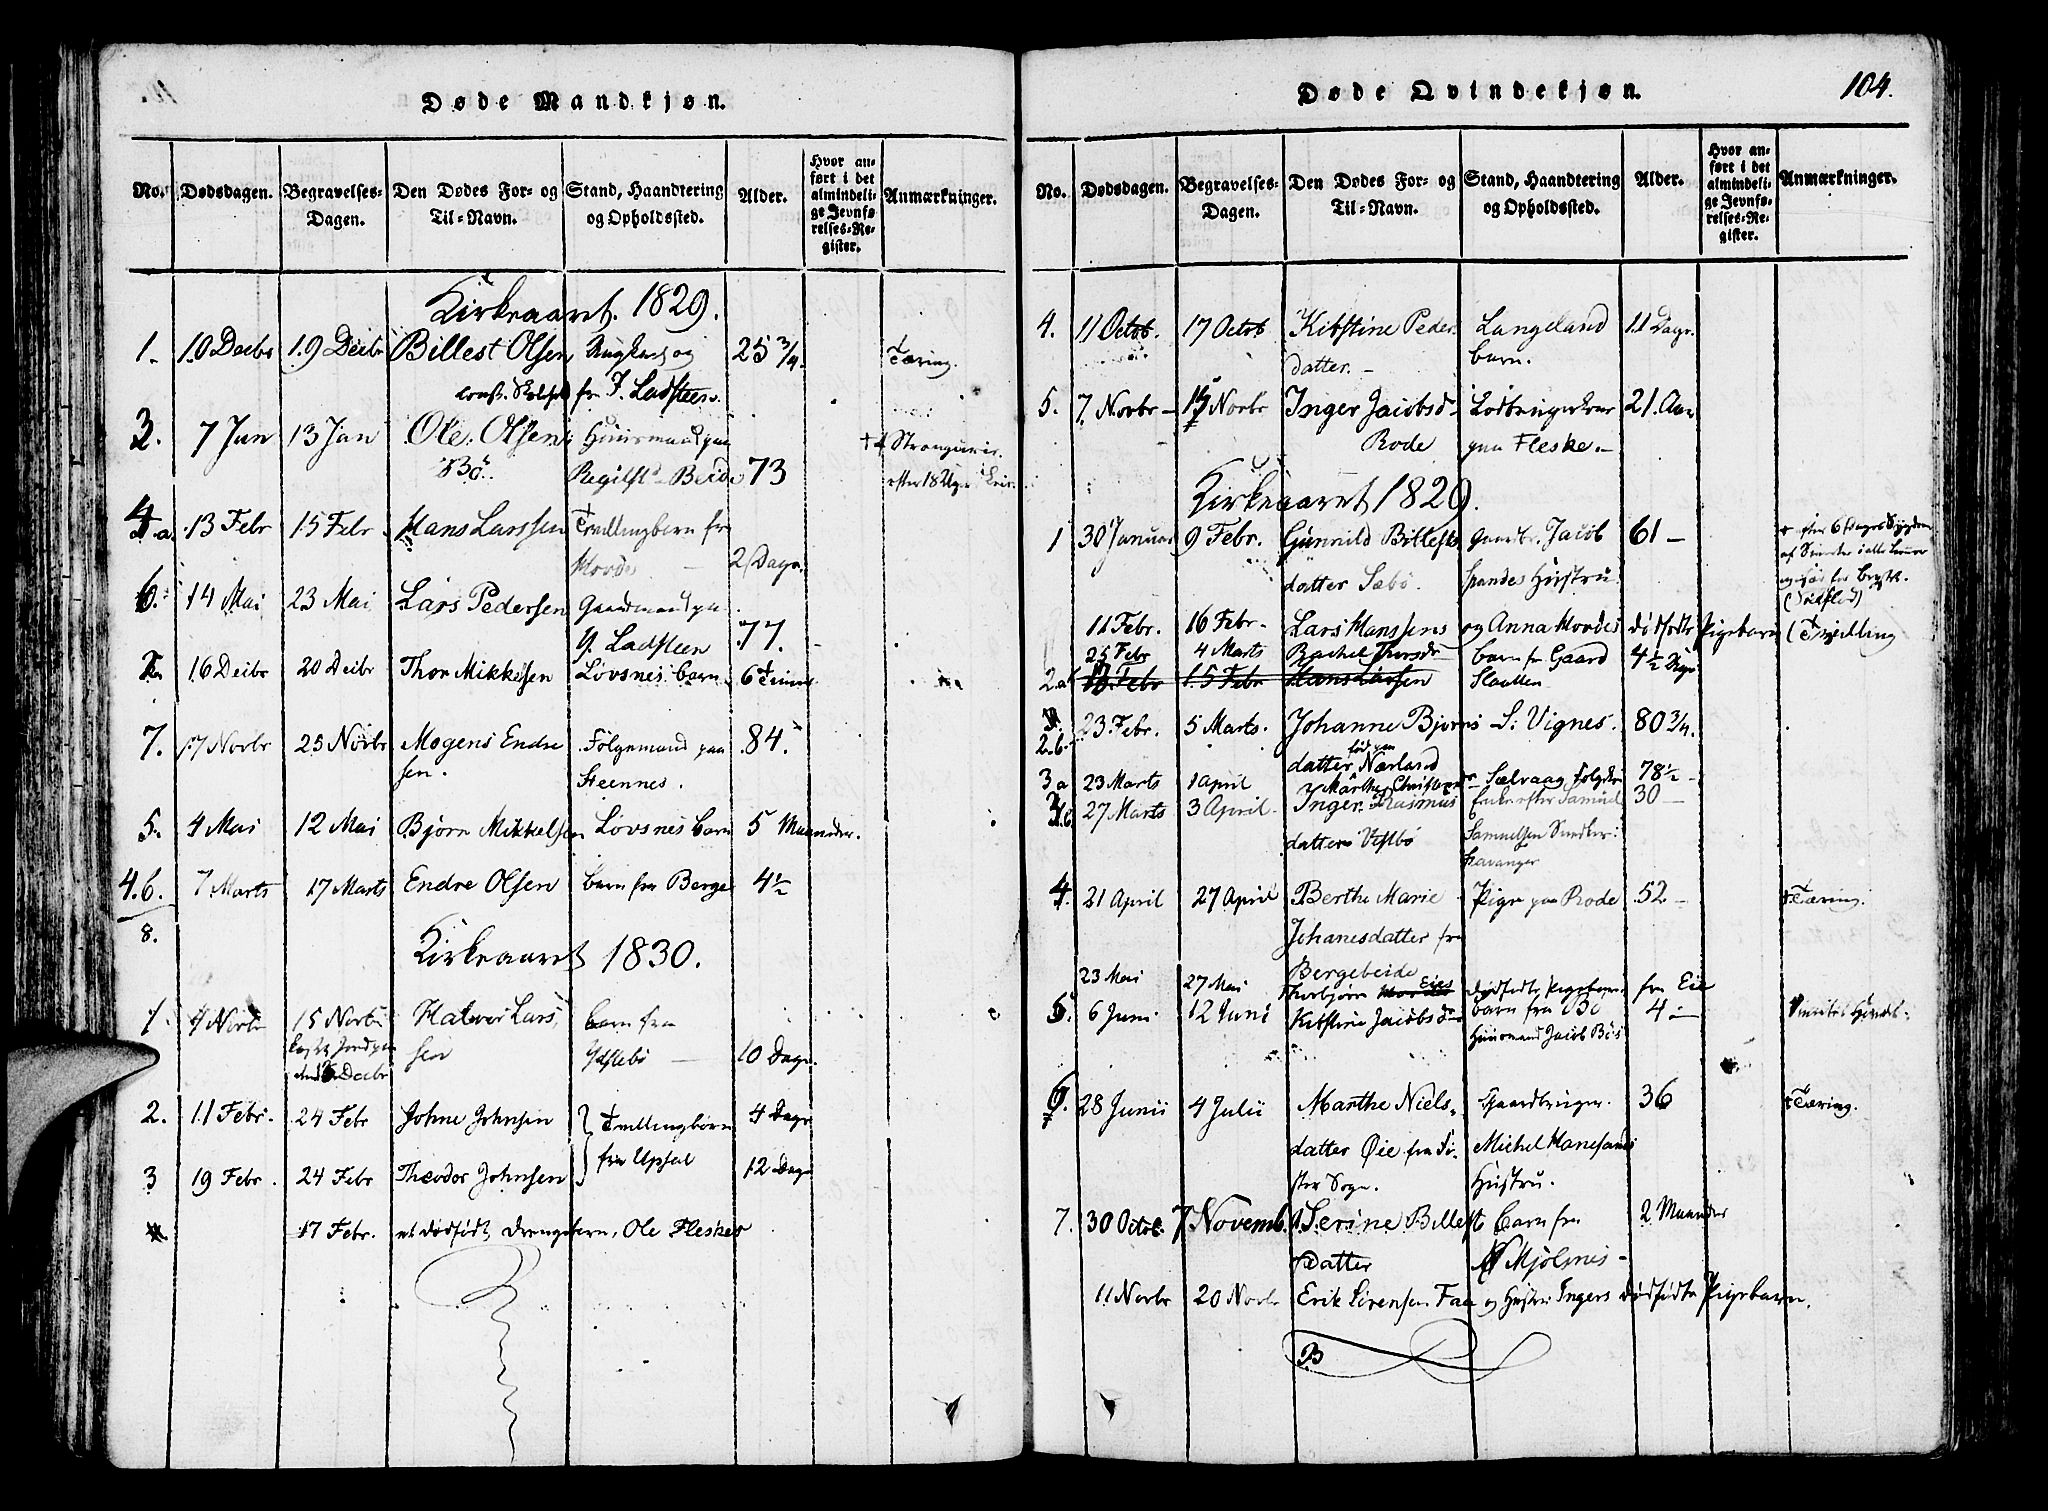 Døde Mandkjøn.
No. Dødsdagen. Begravelses-Dagen. Den Dødes For- og Til-Navn. Stand, Haandtering og Opholdssted. Alder. Hvor anført i det almindelige Jevnførelses-Register. Anmærkninger.
Kirkeaaret. 1829.
1. 10 Decbr 19 Decbr Billest Olsen og 25 3/4. Tæring.
fra J. Ladsteen.
2. 7 Jan 13 Jan Ole Olsen Huusmand paa
Bö. 73
13 Febr 15 Febr Hans Larssen Tvillingbarn fra
Hovda 2 Dage.
6. 14 Mai 23 Mai Lars Pedersen Gaardmand paa
Y. Ladsteen 77.
16 Decbr 20 Decbr Thor Mikkelsen Lövsnes barn 6 Timer
7. 17 Novbr 25 Novbr Mogens Endre Følgemand paa 84.
sen. Steennes.
5. 4 Mai 12 Mai Bjørn Mikkelsen Lövsnes barn 5 Maaneder.
4.b. 7 Marts 17 Marts Endre Olsen barn fra Berge 4½
8.
Kirkeaaret 1830.
1. 4 Novbr 15 Novbr Halvor Lars barn fra
sen Ydstebö 10 Dage.
2. 11 Febr. 24 Febr Johne Johnsen Tvillingbørn 4 Dage
fra Upsal
3 19 Febr. 24 Febr Theodor Johnsen 12 Dage
17 Febr. et dødfødt Drengebarn, Ole Fleskes
Døde Qvindekjøn. 104.
No. Dødsdagen. Begravelses-Dagen. Den Dødes For- og Til-Navn. Stand, Haandtering og Opholdssted. Alder. Hvor anført i det almindelige Jevnførelses-Register. Anmærkninger.
4. 11 Octob. 17 Octob Kirstine Peder Langeland 11 Dage.
datter. – barn.
5. 7 Novbr – 15 Novbr Inger Jacobsd 21. Aar
Rode paa Fleske. –
Kirkeaaret 1829.
1 30 Januar 9 Febr. Gunnild Billest Gaardbr. Jacob 61 –
datter Sæbö. Hustru.
11 Febr. 16 Febr. Lars Hanssens og Anna Hovdes dödfödte Pigebarn (Tvilling
25 Febr 4 Marts Rachel Thorsdr barn fra Gaard 4½ Dage
2.a 13 Febr 15 Febr Hans Larssen Slaatten
23 Febr. 5 Marts. Johanne Bjørns S. Vignes. 80 3/4.
2.b. født paa
datter Nærland
3 a 23 Marts 1 April Marthe Christens Sælvaag 78½ –
27 Marts 3 April. Inger Rasmus Enke efter Samuel 30 –
datter Vestbö Samuelsen
Stavanger
4. 21 April 27 April Berthe Marie Pige paa Rode 52 – Tæring.
Johanesdatter fra
Bergebeide
23 Mai 27 Mai Thorbjørn Eies dödfödte Pigebarn fra Eie
5. 6 Juni 12 Juni Kirstine Jacobsd barn fra Bö 4
Huusmand Jacob Bös
6. 28 Junii 4 Julii Marthe Niels Gaardbruger 36 Tæring.
datter Øie fra Fister Michel Hanesands
Sogn. Hustru.
7. 30 Octob. 7 Novemb. Serine Billest barn fra 2 Maaneder
datter Mjölsnes –
11 Novbr 20 Novbr Erik Sörensen Faa og Hustru Ingers dödfödte Pigebarn.